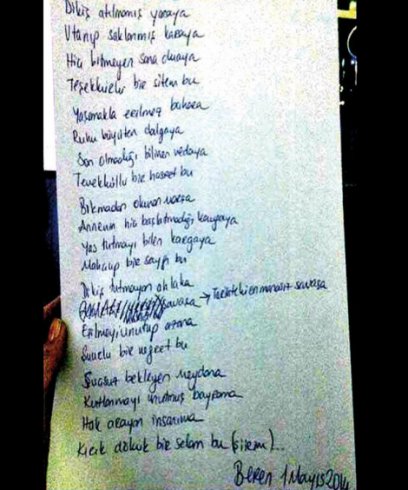 Dikiş atılmamış yaraya
Utanıp saklanmış karaya
Hiç bitmeyen sana duaya
Teşekkürlü bir sitem bu
Yaşamakla erilmez bahara
Ruhu büyüten dalgaya
Son olmadığı bilinen vedaya
Tevekküllü bir hasret bu
Bıkmadan okunan
Annenin hiç başlatmadığı kavgaya
Yas tutmayı bilen kargaya
Mahcup bir sayfa bu
Dikiş tutmayan ahlaka
savaşa → Tarihteki en manasız savaşa
Ezilmeyi unutup artana
Suçlu bir niyet bu
Sükut bekleyen meydana
Kutlanmayı unutmuş bayrama
Hak arayan insanıma
Kırık dökük bir selam bu
Beren 1 Mayıs 2014